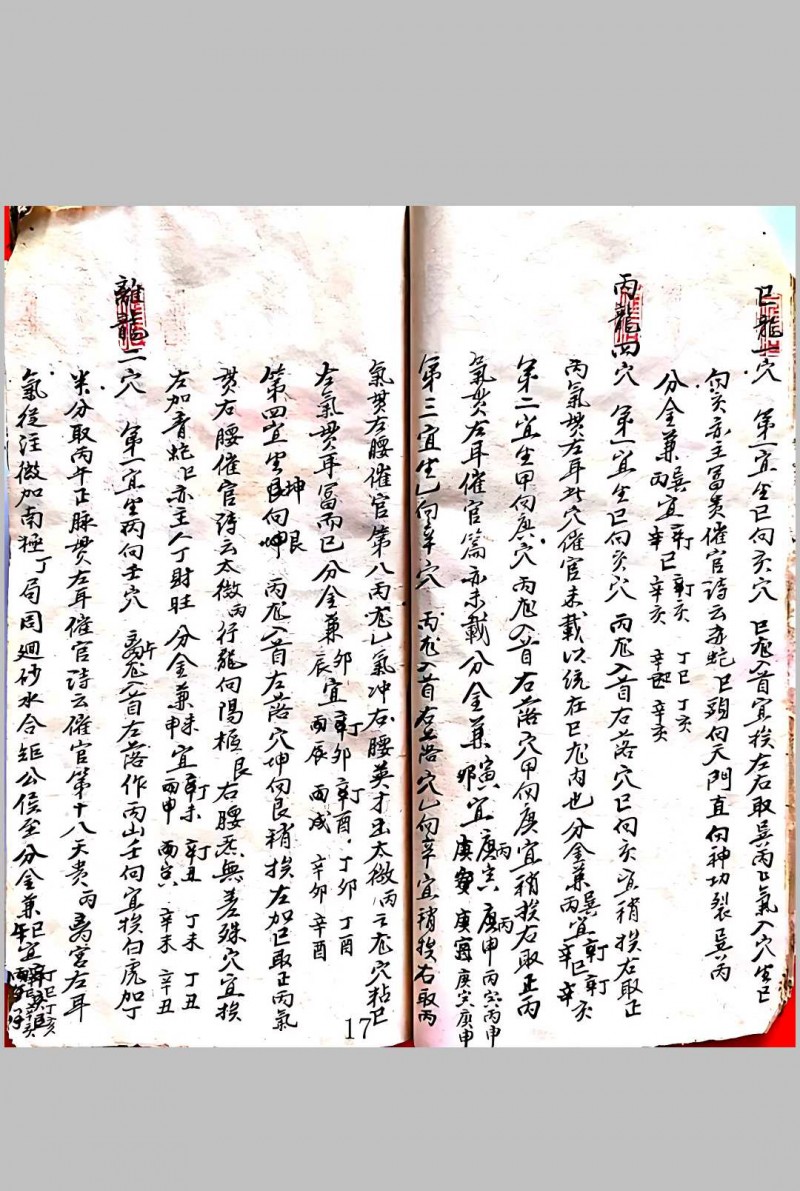 巳龍一穴 第一宜坐巳向亥穴 巳龙入首宜挨左右取巽丙巳氣入穴坐巳
向亥亦主富贵催官詩云赤蛇巳頭向天門直向神功裂巽丙
分金兼巽丙宜辛巳 辛亥 丁巳 丁亥 辛巳 辛亥
丙龍四穴 第一宜坐巳向亥穴 丙龙入首右落穴巳向亥宜稍挨右取正
丙氣贯左耳此穴催官未載以統在巳龙内也 分金兼巽丙宜辛巳 辛亥
第二宜坐甲向庚穴 丙龙入首右落穴甲向庚宜稍挨右取正丙
氣贯左耳催官篇亦未載 分金兼寅卯宜庚寅 庚申 丙寅 丙申 庚寅 庚申
第三宜坐乙向辛穴 丙龙入首右落穴乙向辛宜稍挨右取丙
氣贯右腰催官第八丙龙乙氣冲右腰英才出太微丙云龙穴粘巳
左氣贯耳富而已 分金兼卯辰宜 丁卯 丁酉 丙辰 丙戌 辛卯 辛酉
第四宜坐坤向艮 丙龙入首左落穴坤向艮稍挨左加巳取正丙氣
贯右腰催官詩云太微丙行龍向陽樞艮右腰炁無差殊穴宜挨
左加青蛇巳亦主人丁財旺 分金兼未申宜辛未 辛丑 丁未 丁丑 丙申 丙寅 辛未 辛丑
離龍二穴 第一宜坐丙向壬穴 離龙入首左落作丙山壬向宜挨白虎加丁
半分取丙午正脉贯左耳催官詩云催官第十八天贵丙离宫左耳
氣從注微加南極丁局周廻砂水合矩公侯至 分金兼巳午宜 丁巳 丁亥
17